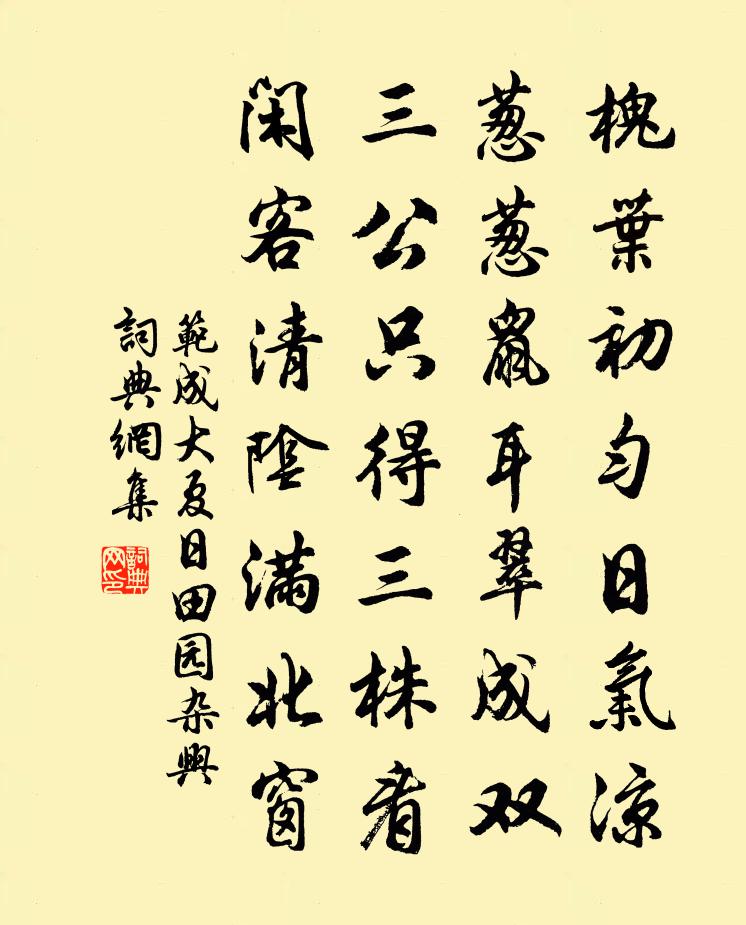 槐葉初匀日氣涼
葱葱鼠耳翠成双
三公只得三株看
闲客清陰滿北窗
範成大夏日田园杂興
詞典網集
詞典网印